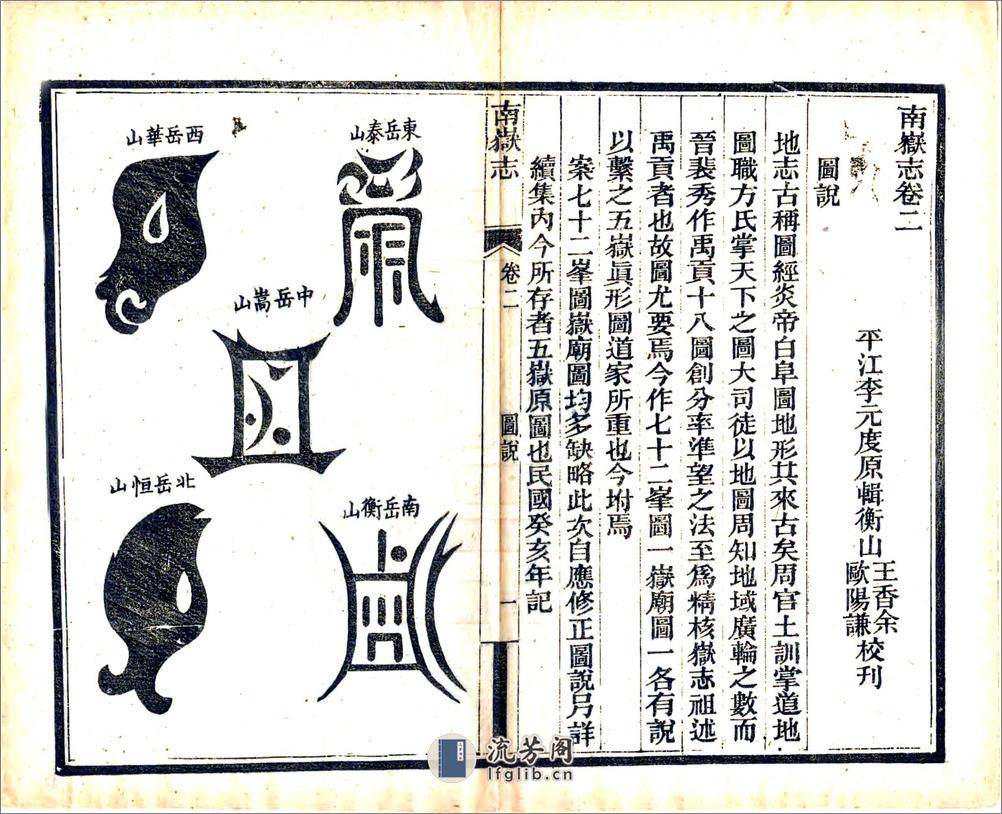 南嶽志卷二
平江李元度原輯衡山王香余歐陽謙校刊
圖說
地志古稱圖經炎帝白阜圖地形其來古矣周官土訓掌道地
圖職方氏掌天下之圖大司徒以地圖周知地域廣輪之數而
晉裴秀作禹貢十八圖創分率準望之法至爲精核嶽志祖述
禹貢者也故圖尤要焉今作七十二峯圖一嶽廟圖一各有說
以繫之五嶽眞形圖道家所重也今坿焉
案七十二峯圖嶽廟圖均多缺略此次自應修正圖說另詳
續集內今所存者五嶽原圖也民國癸亥年記
南嶽志
卷二
圖說
一
東岳泰山
西岳華山
中岳嵩山
南岳衡山
北岳恒山
流芳阁
lfglib.cn